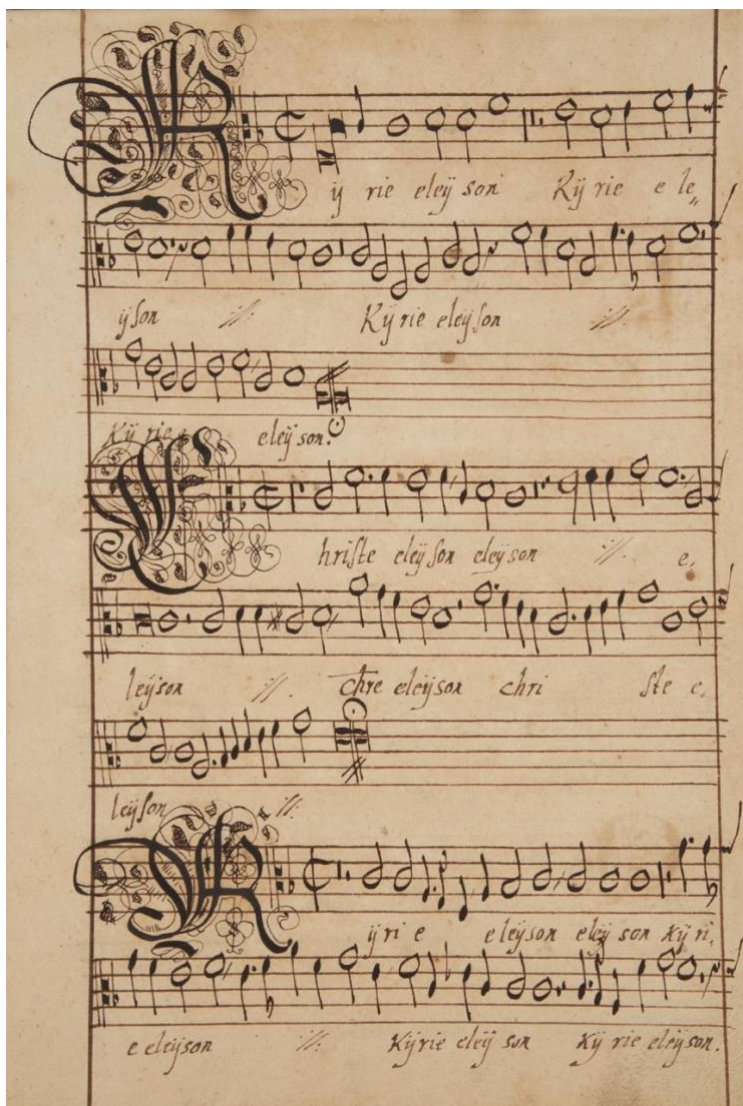 Kÿ rie eleÿ son Kÿ rie e le„
ÿson :||: Kÿ rie eleÿson :||:
Kÿ rie eleÿ son.
Christe eleÿson eleÿson :||: e,
leÿson :||: chre eleÿson chri ste e,
leÿson :||:
Kÿri e eleÿson eleÿ son Kÿ ri,
e eleÿson :||: Kÿrie eleÿ son Kÿ rie eleÿson.